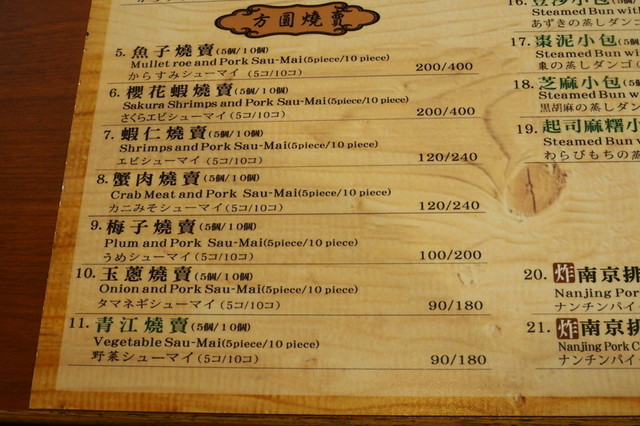 方圓燒賣
5. 魚子燒賣(5個/10個)
Mullet roe and Pork Sau-Mai(5piece/10 piece)
からすみシューマイ (5コ/10コ) 200/400
6. 櫻花蝦燒賣(5個/10個)
Sakura Shrimps and Pork Sau-Mai(5piece/10 piece)
さくらエビシューマイ(5コ/10コ) 200/400
7. 蝦仁燒賣(5個/10個)
Shrimps and Pork Sau-Mai(5piece/10 piece)
エビシューマイ (5コ/10コ) 120/240
8. 蟹肉燒賣(5個/10個)
Crab Meat and Pork Sau-Mai(5piece/10 piece)
カニみそシューマイ(5コ/10コ) 120/240
9. 梅子燒賣(5個/10個)
Plum and Pork Sau-Mai(5piece/10 piece)
うめシューマイ(5コ/10コ) 100/200
10. 玉蔥燒賣(5個/10個)
Onion and Pork Sau-Mai(5piece/10 piece)
タマネギシューマイ (5コ/10コ) 90/180
11. 青江燒賣(5個/10個)
Vegetable Sau-Mai(5piece/10 piece)
野菜シューマイ(5コ/10コ) 90/180
Steamed Bun with
あずきの蒸しダンゴ
17. 棗泥小包(5
Steamed Bun with
棗の蒸しダンゴ(
18. 芝麻小包(5
Steamed Bun with
黒胡麻の蒸しダン
19. 起司麻糬小
Steamed Bun w
わらびもちの蒸
20. 炸南京排
Nanjing Por
ナンチンパイ
21. 炸南京排
Nanjing Pork C
ナンチンパイ